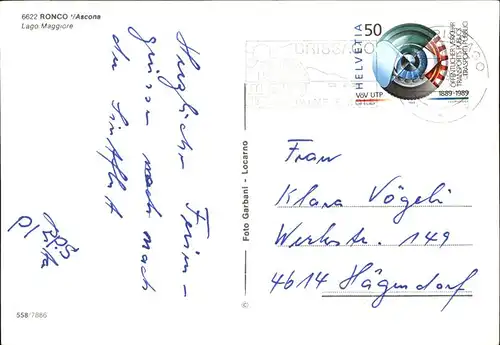 6622 RONCO s/Ascona
Lago Maggiore
Herzliche Ferien-
grüsse nach
der Sintflut
558/7886
Foto Garbani - Locarno
©
BRISSAGO
HELVETIA
50
VöV UTP
1889-1989
ÖFFENTLICHER VERKEHR
TRANSPORTS PUBLICS
TRASPORTO PUBBLICO
Frau
Klara Vögeli
Werkstr. 149
4614 Hägendorf